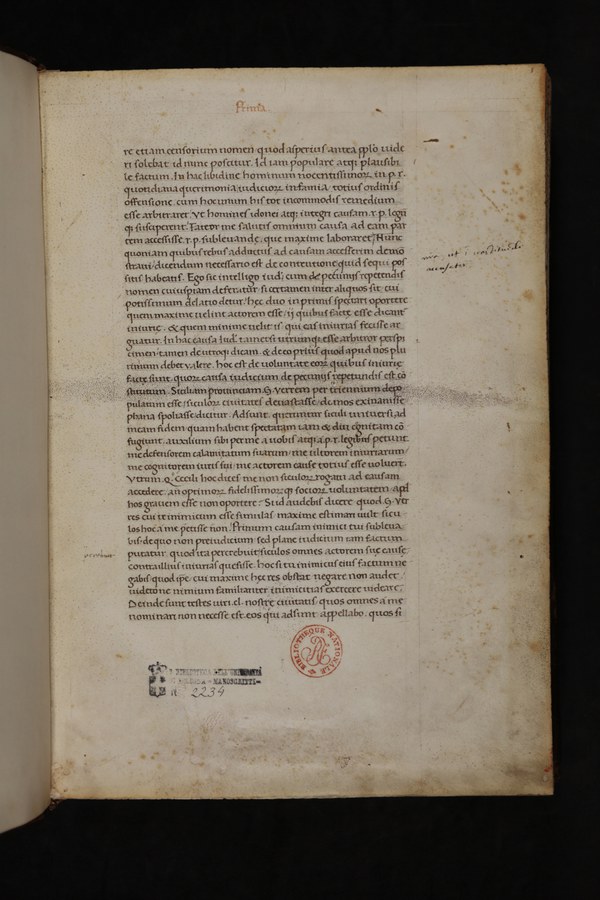 Prima
re etiam censorium nomen quod asperius antea pplo uide
ri solebat id nunc poscitur. Id iam populare atq; plausibi
le factum. In hac libidine hominum nocentissimoꝝ in p. r.
quotidiana querimonia iudicioꝝ infamia totius ordinis
offensione cum hoc unum his tot incommodis remedium
esse arbitrarer. Vt homines idonei atq; integri causam. r. p. legū
q; susciperent. Fateor me salutis omnium causa ad eam par
tem accessisse. r. p. subleuande. que maxime laboraret. Nunc
quoniam quibus rebus adductus ad causam accesserim demō
straui dicendum necessario est de contentione quid sequi pos
sitis habeatis. Ego sic intelligo iud. cum de pecunijs repetendis
nomen cuiuspiam deferatur si certamen inter aliquos sit cui
potissimum delatio detur. hec duo in primis spectari oportere
quem maxime uelint actorem esse ij quibus facte esse dicant
iniurie. & quem minime uelit is qui eas iniurias fecisse ar
guatur. In hac causa iud. tametsi utrunq; esse arbitror perspi
cuum tamen de utroq; dicam. & de eo prius quod apud nos plu
rimum debet ualere. hoc est de uoluntate eoꝝ quibus iniurie
facte sunt. quoꝝ causa iudicium de pecunijs repetundis est cō
stitutum. Siciliam prouinciam. G. verrem per triennium depo
pulatum esse siculoꝝ ciuitates deuastasse domos exinanisse
phana spoliasse dicitur. Adsunt. queruntur siculi uniuersi. ad
meam fidem quam habent spectatam iam & diu cognitam cō
fugiunt. auxilium sibi per me a uobis atq; a. p. r. legibus petunt.
me defensorem calamitatum suarum me ultorem iniuriarum
me cognitorem iuris sui me actorem cause totius esse uoluerт.
Vtrum. Q. Cecili hoc dices me non siculoꝝ rogatu ad causam
accedere. an optimoꝝ fidelissimoꝝq; socioꝝ uoluntatem apd
hos grauem esse non oportere. Si id audebis dicere quod. G. ver
res cui te inimicum esse simulas maxime existimari uult. sicu
los hoc a me petisse non. Primum causam inimici tui subleua
bis. de quo non preiudicium sed plane iudicium iam factum
putatur. quod ita percrebuit siculos omnes actorem sue cause
contra illius iniurias quesisse. hoc si tu inimicus eius factum ne
gabis quod ipse cui maxime hec res obstat negare non audet
uideto ne nimium familiariter inimicitias exercere uideare.
Deinde sunt testes uiri. cl. nostre ciuitatis quos omnes a me
nominari non necesse est. eos qui adsunt appellabo. quos si
BIBLIOTHEQUE NATIONALE
MANOSCRITTI
2234